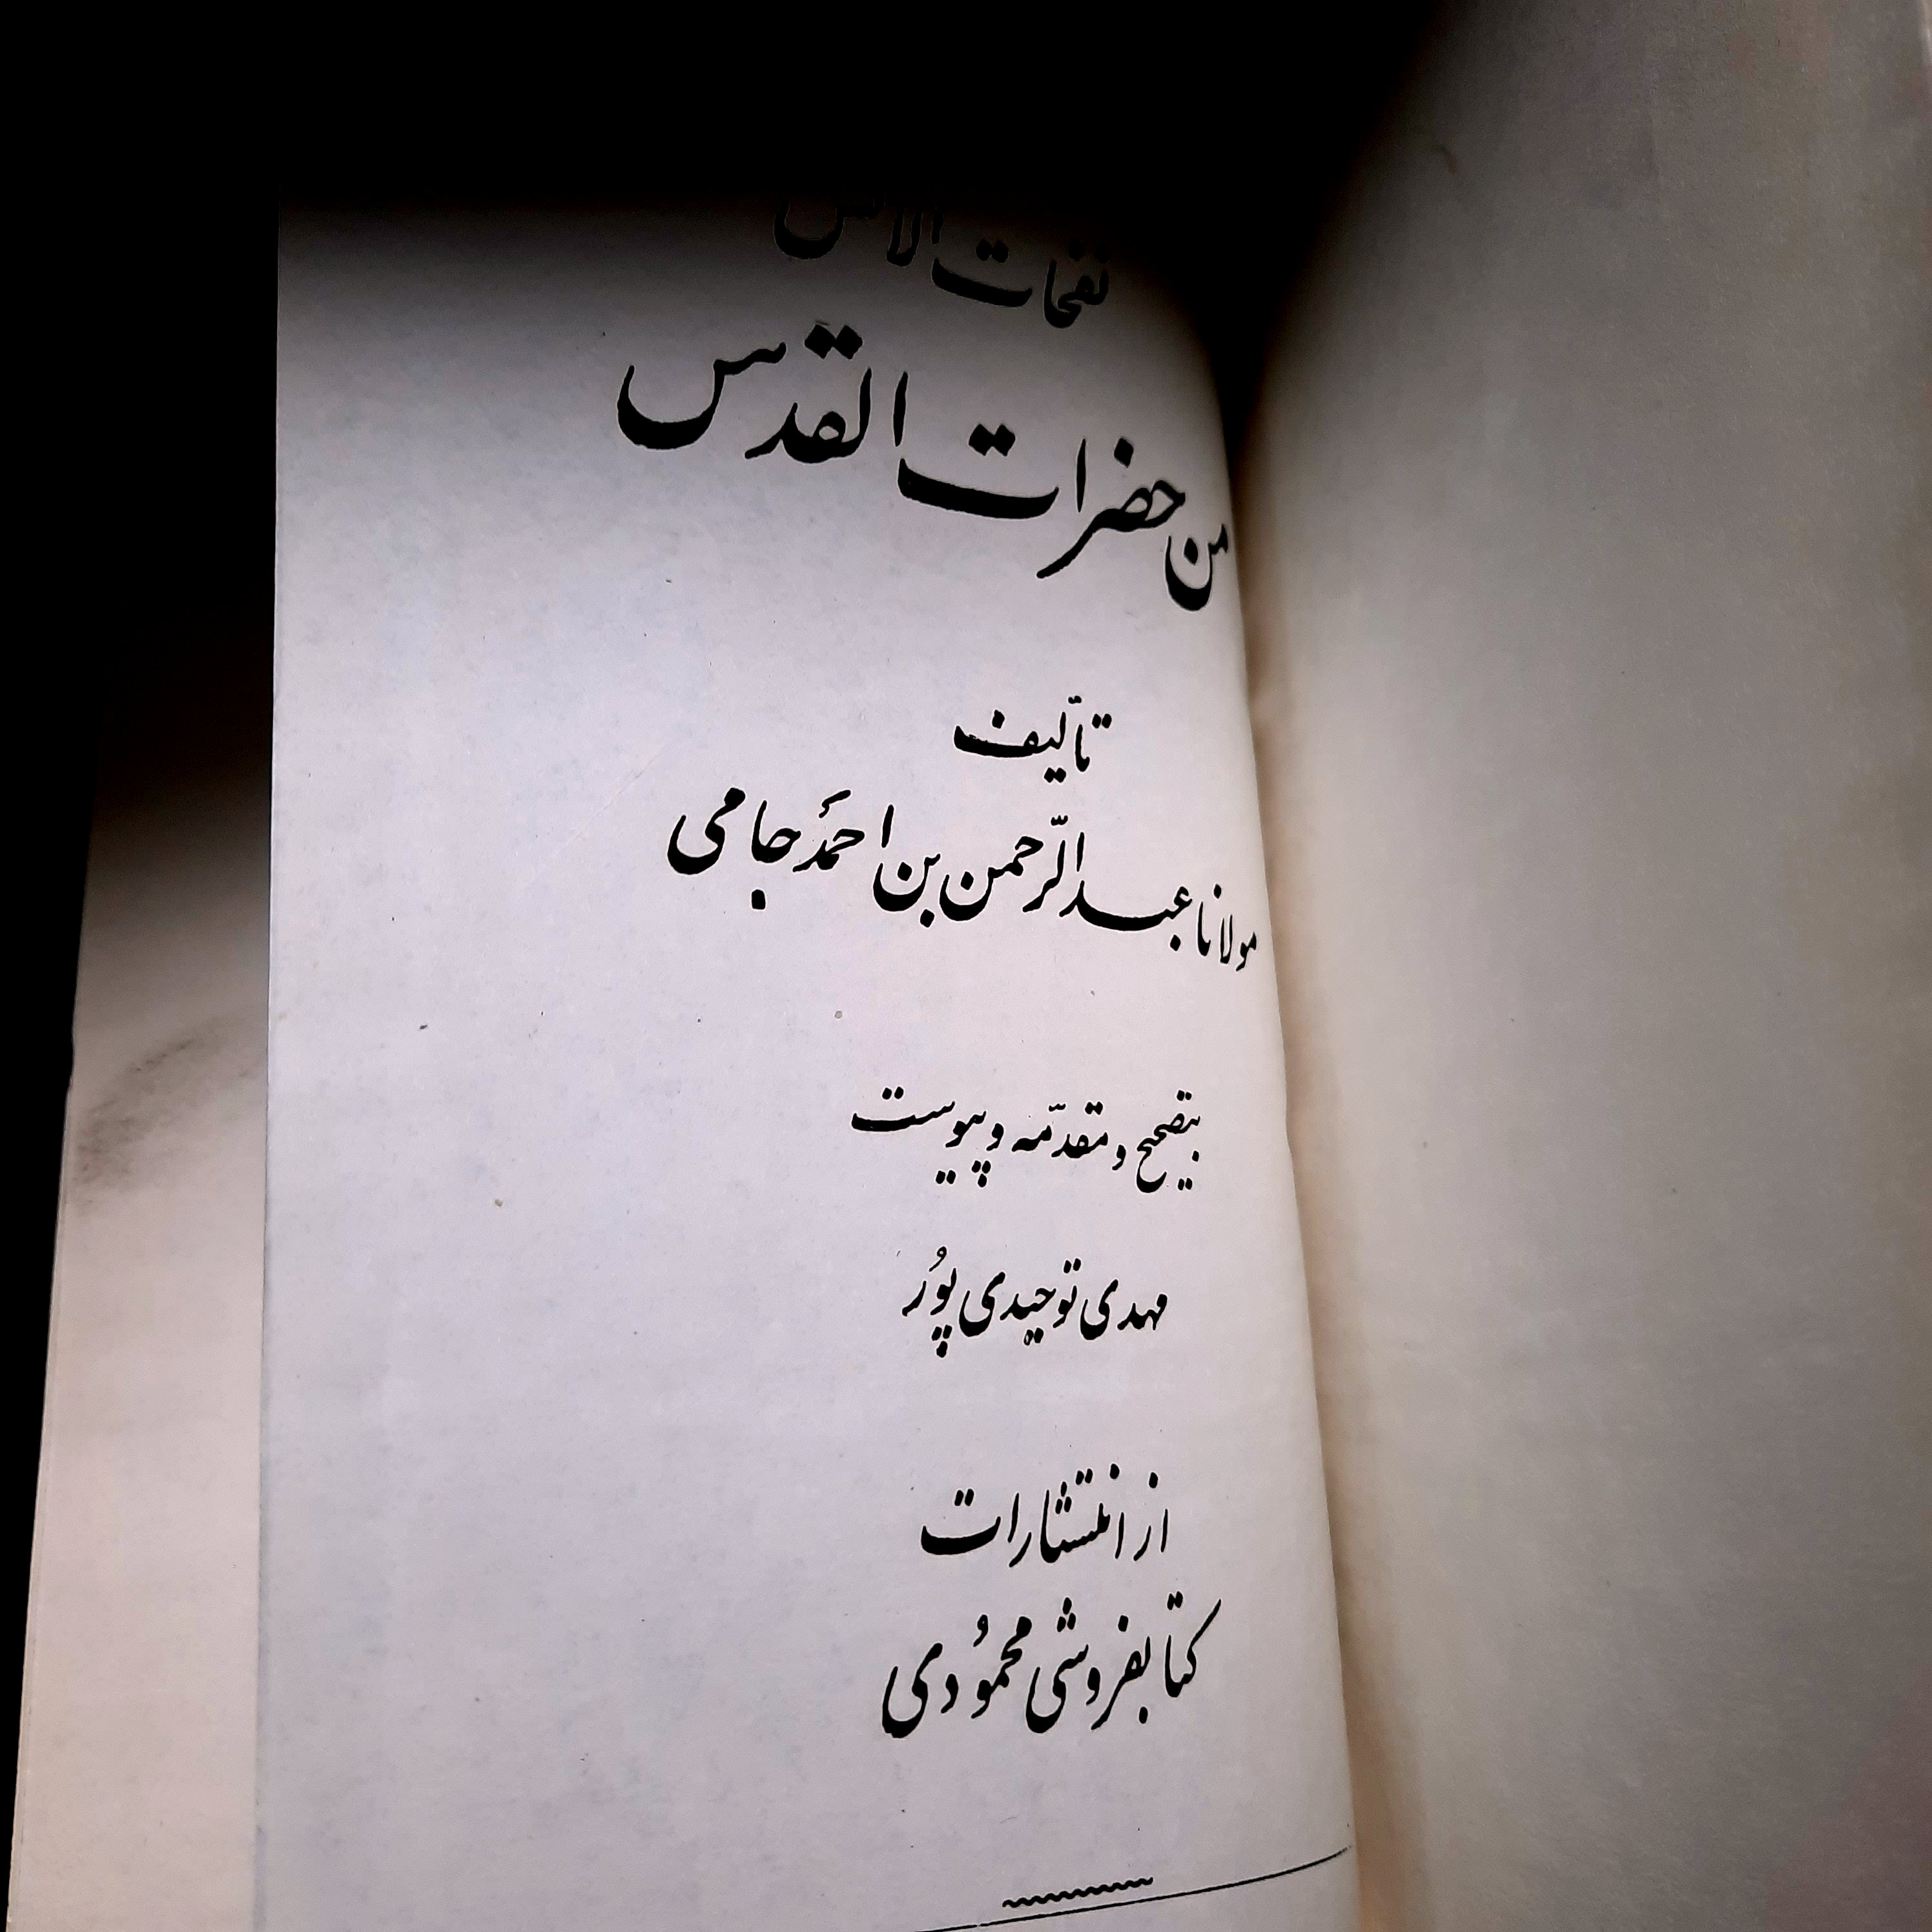 نفحات الانس
من حضرات القدس
تألیف
مولانا عبدالرّحمن بن احمد جامی
بتصحیح و مقدّمه و پیوست
مهدی توحیدی پُور
از انتشارات
کتابفروشی محمُودی